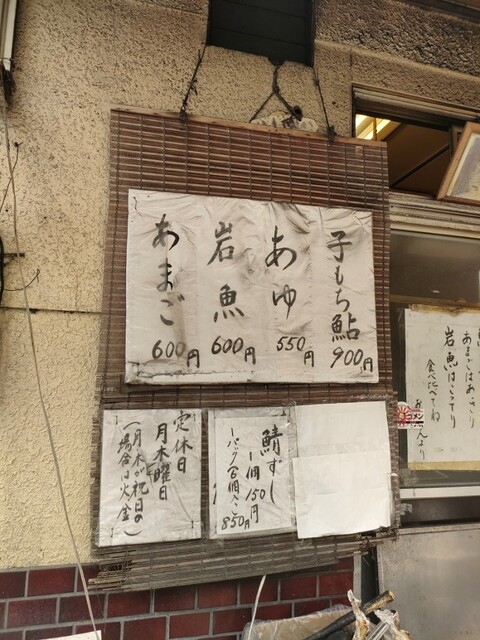 子もち鮎 900円
あゆ 550円
岩魚 600円
あまご 600円
鯖ずし
一個 150円
一パック(6個入)
850円
定休日
月木曜日
(月木が祝日の
場合は火金)
あまごはあっさり
岩魚はこってり
食べ比べてね